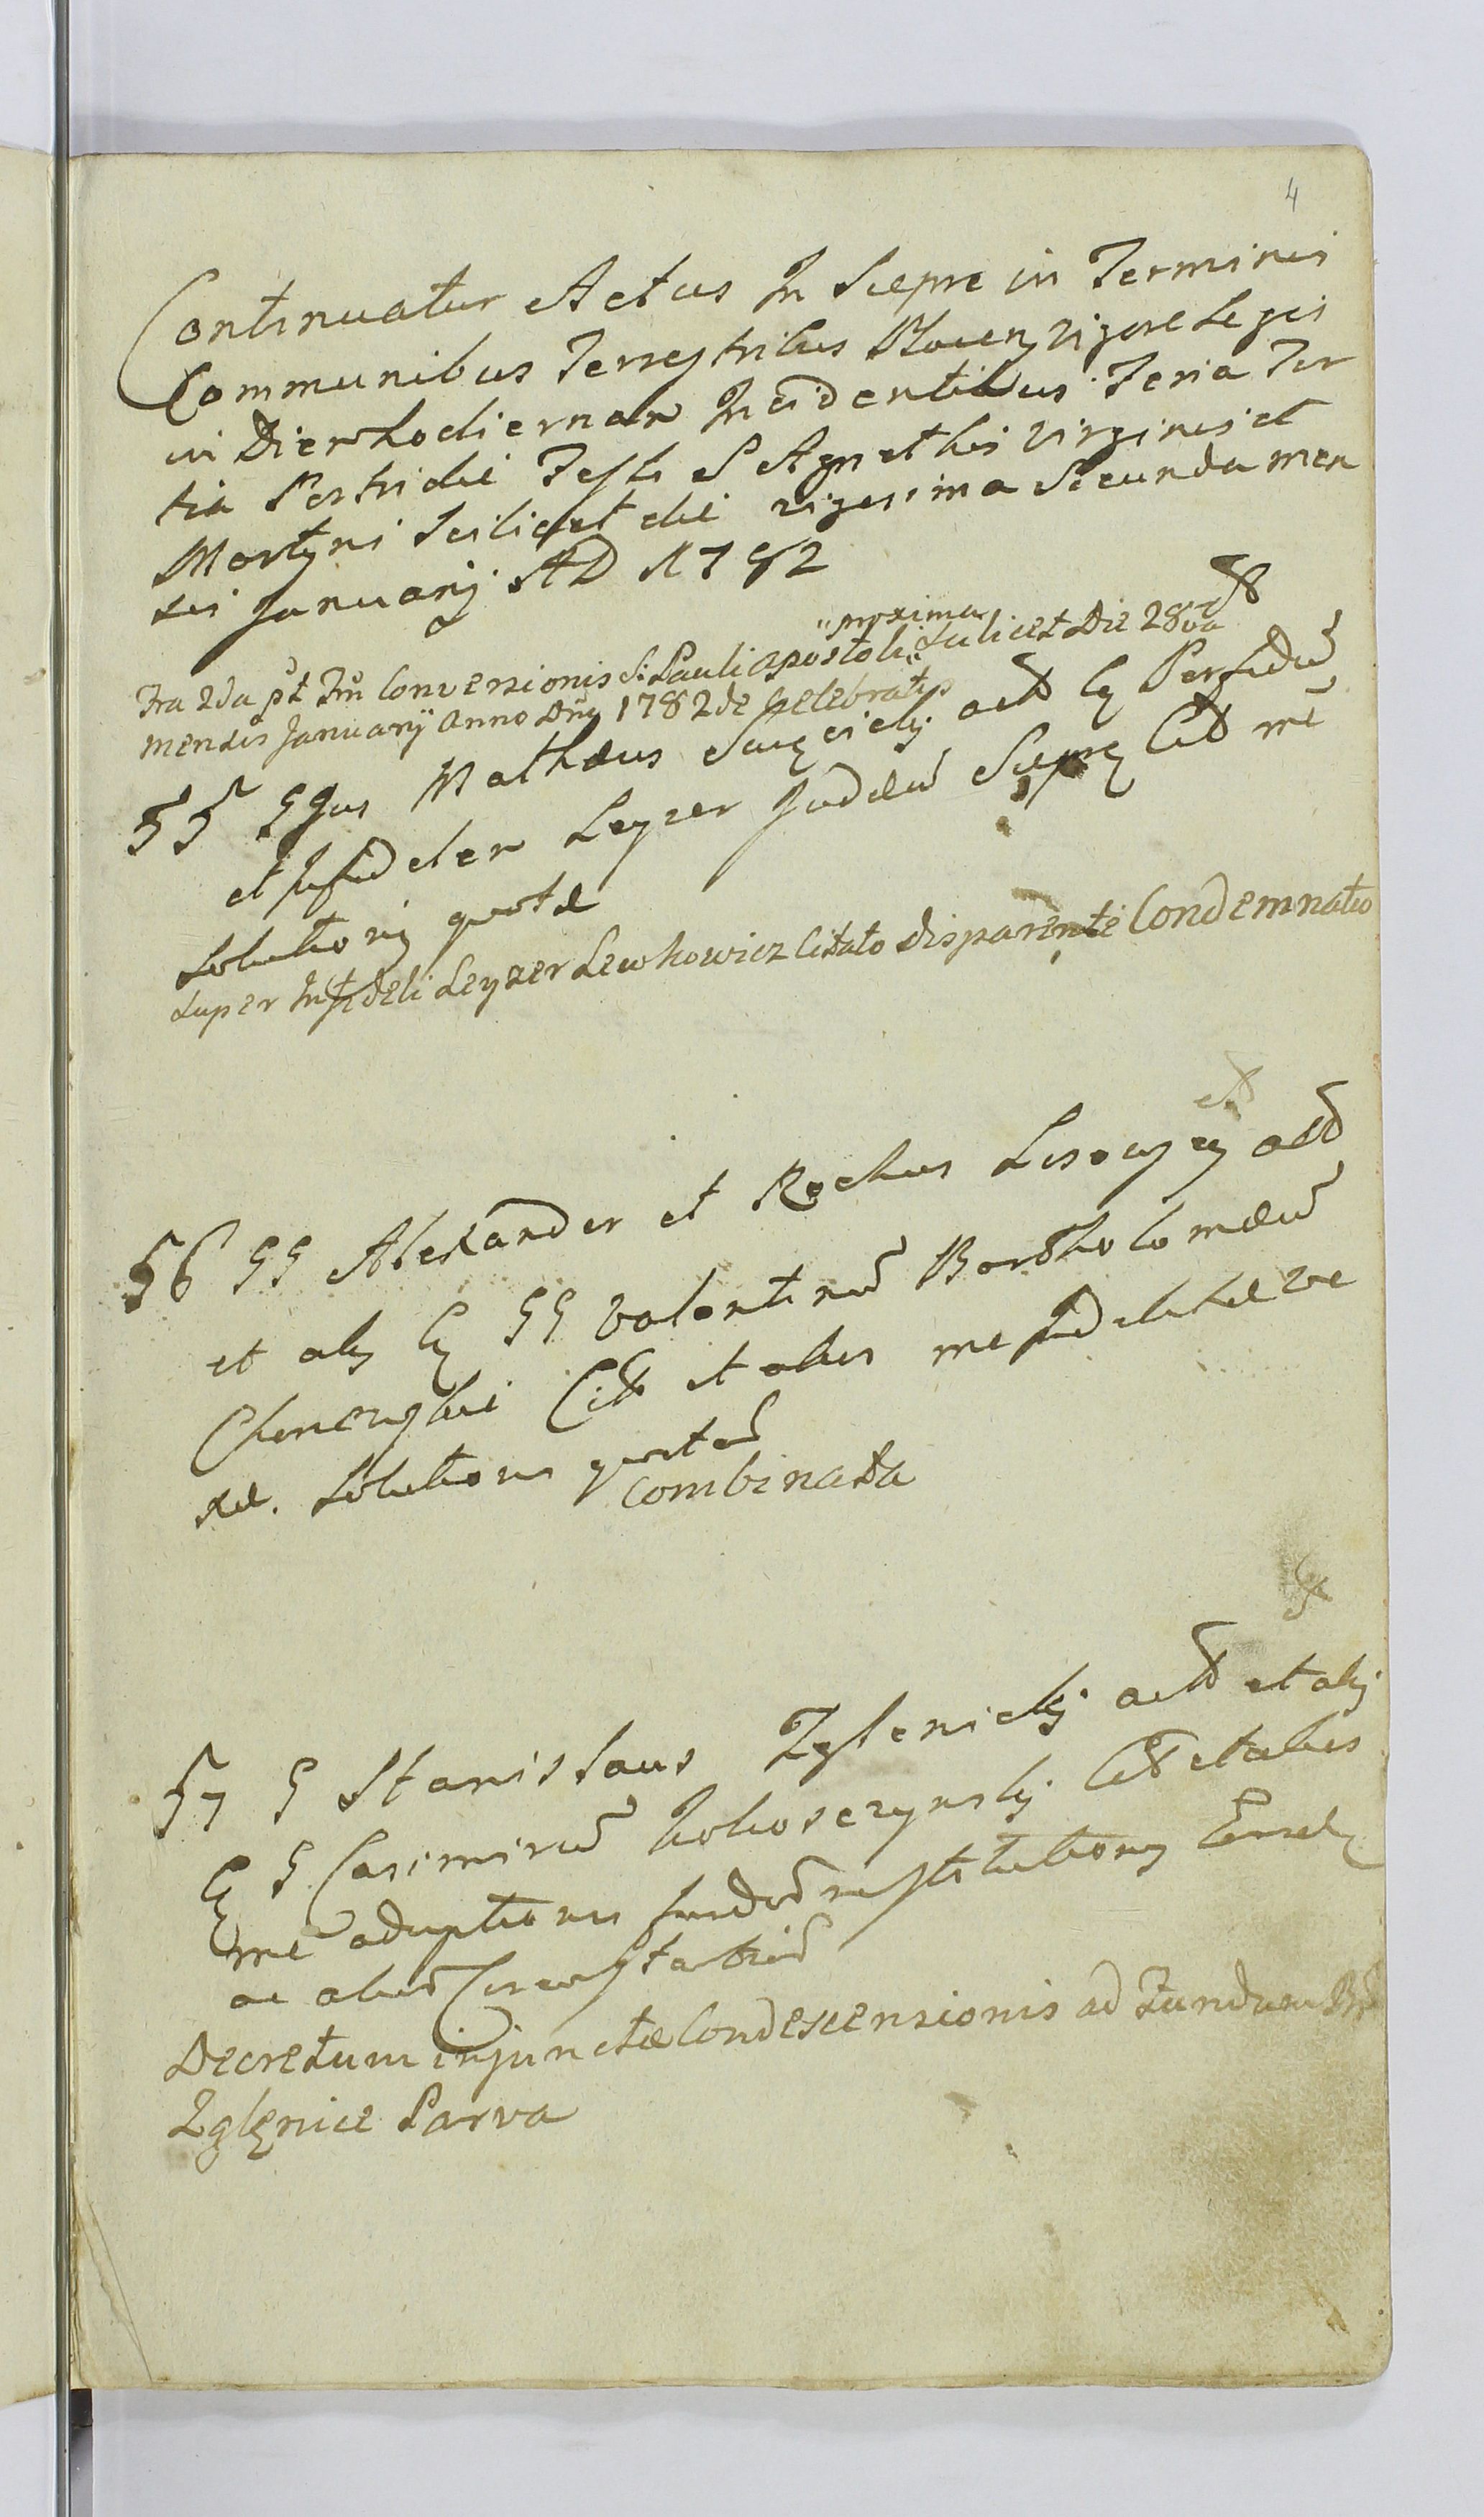 4
Continuatur Actus In Siepre in Terminis
Communibus Terrestribus Plocen Vigore Legis
in Diem hodiernam Incidentibus Feria Ter
tia Postridie Festi S Agnethis Virginis et
Martyris Scilicet die vigesima Secunda men
sis Januarij AD 1782
Fra 2da pt Fm Conversionis S: Pauli Apostoli "proxima" scilicet Die 28va
mensis Januarij Anno Dni 1782de celebratis
55 Ggus Mathæus act Cq Perfidu
et Infidelem Leyzer Judæu Sieprq Citt me
Solutionis quotæ
super Infideli Leyzer Lewkowicz Citato disparente Condemnatio
56 GG Alexander et Rochus act
et alij Cq GG Valentinu Bartholomæu
Citt et alios me
Solutionis quotæ
Combinata
57 G Stanislaus Zglenicki act et alij
Cq G Casimiru Kokoszczynski Citt et alios
me aduptionis fundor restitutionis
ac aliar Circumstantiar
Decretum injunctæ Condescensionis ad Fundum
Zglenice Parva